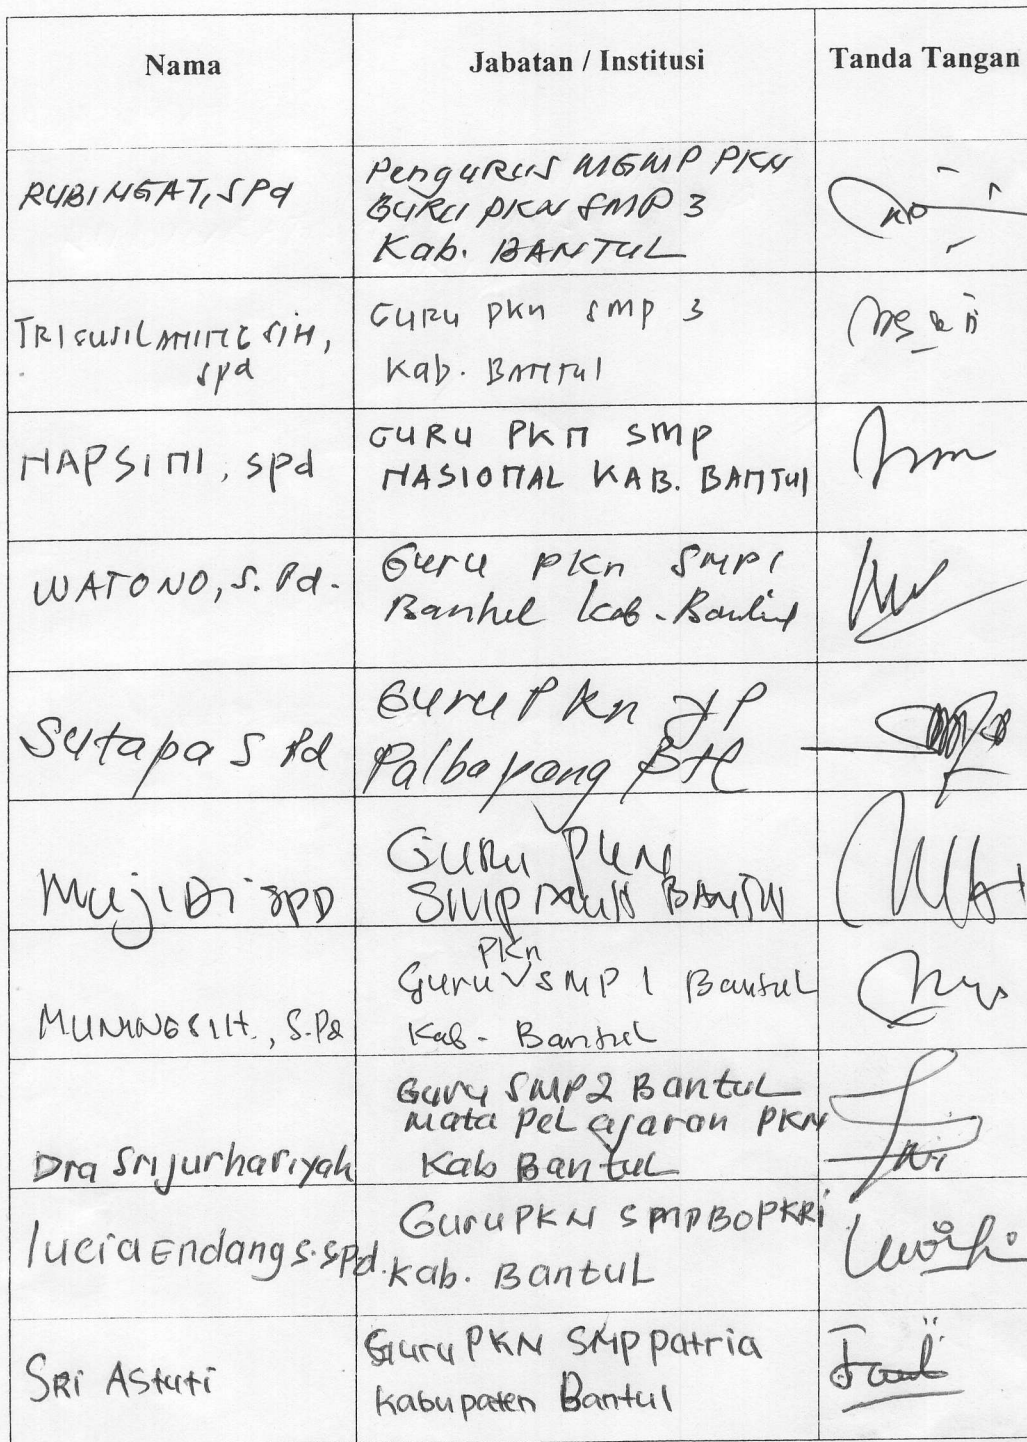 Nama Jabatan / Institusi Tanda Tangan
RUBINGAT, SPd
PenguRus MGMP PKN
GURU PKN SMP 3
Kab. BANTUL
TRISUSILANINGSIH,
spd
GURU PKn SMP 3
Kab. BANTUl
HAPSINI, spd
GURU PKN SMP
NASIONAL KAB. BANTUl
WATONO, S. Pd.
Guru PKn SMP 1
Bantul Kab. Bantul
Sutapa S Pd
Guru PKn
Palbapang Btl
MUjiDi SPD
GURU PKN
SMP BANTUL
MUNINGSIH., S.Pd
PKn
Guru SMP 1 Bantul
Kab. Bantul
Dra Srijurhariyah
Guru SMP2 Bantul
Mata PeLajaran PKN
Kab BantuL
lucia Endang S. Spd.
Guru PKN SMP BOPKRI
Kab. BantuL
SRi AStuti
Guru PKN SMP patria
Kabupaten Bantul